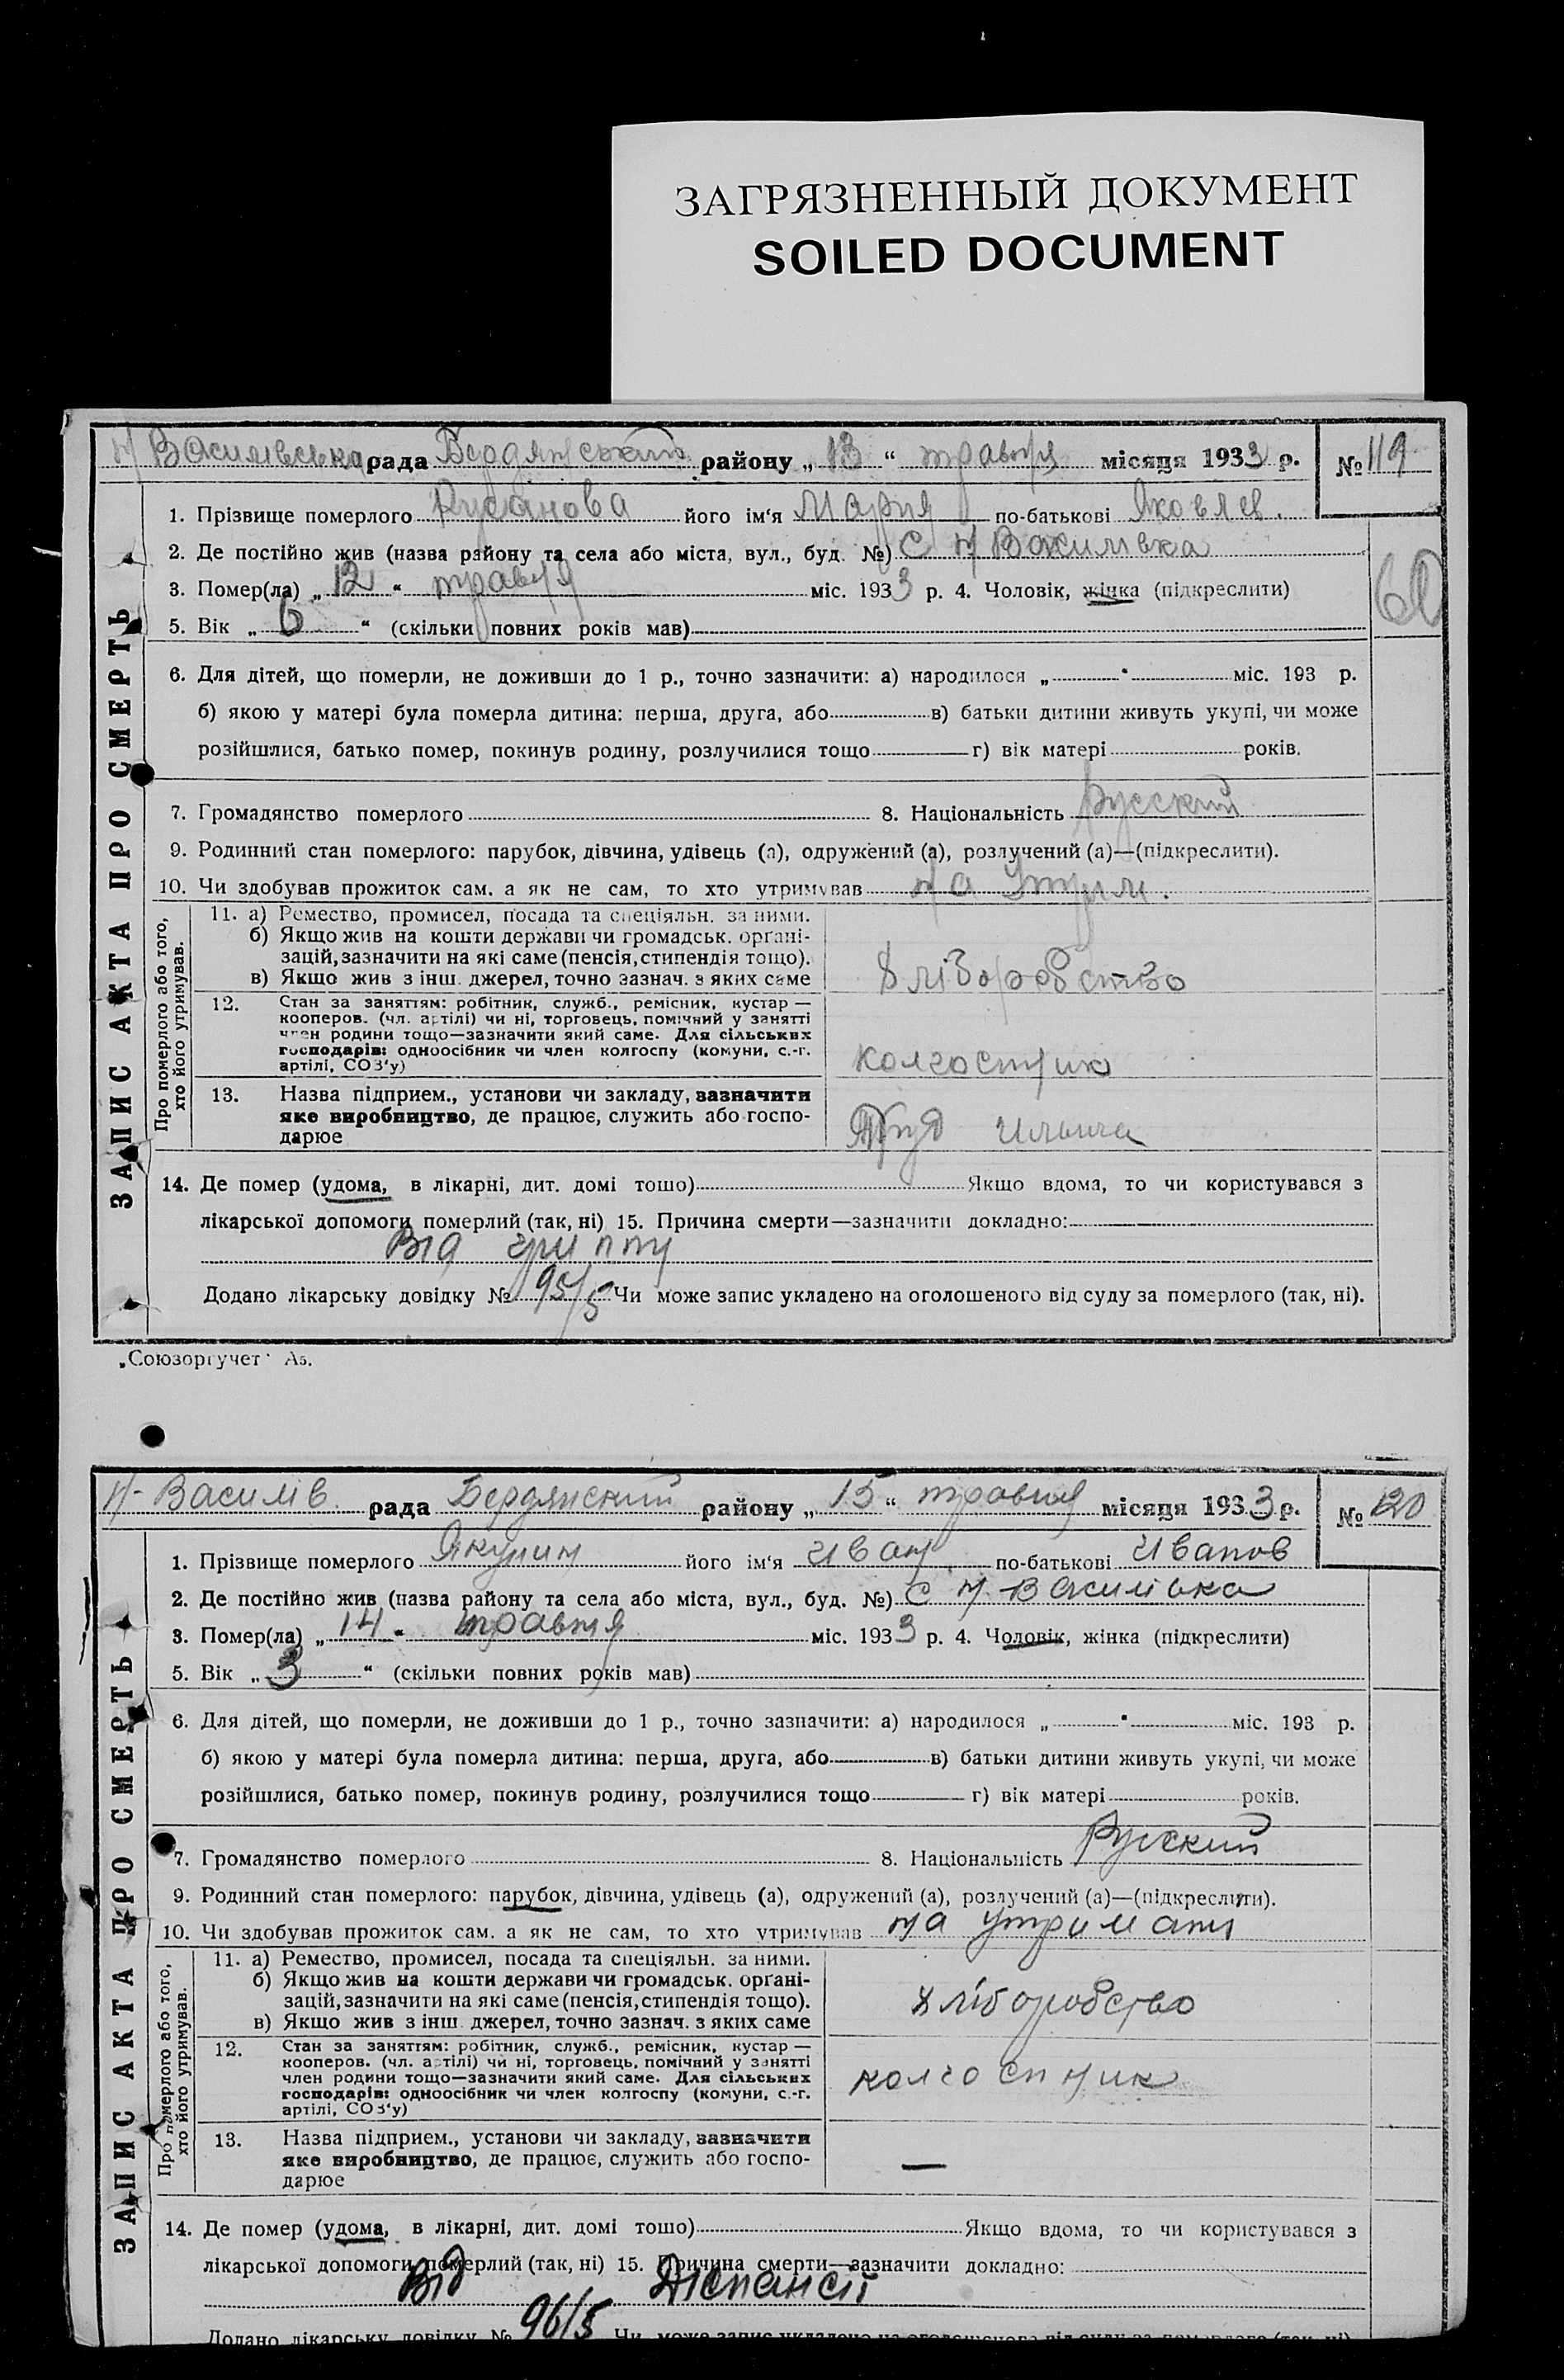 ЗАГРЯЗНЕННЫЙ ДОКУМЕНТ
SOILED DOCUMENT
Н Василівська рада Бердянський району „13“ травня місяця 1933 р. № 119
1. Прізвище померлого Русанова його ім'я Мария по-батькові Яковлев.
2. Де постійно жив (назва району та села або міста, вул., буд. №) С Н Василівка
3. Помер(ла) „12“ травня міс. 1933 р. 4. Чоловік, жінка (підкреслити)
60
5. Вік „6“ (скільки повних років мав)
6. Для дітей, що померли, не доживши до 1 р., точно зазначити: а) народилося „ “ міс. 193 р.
б) якою у матері була померла дитина: перша, друга, або в) батьки дитини живуть укупі, чи може
розійшлися, батько помер, покинув родину, розлучилися тощо г) вік матері років.
7. Громадянство померлого 8. Національність русский
9. Родинний стан померлого: парубок, дівчина, удівець (а), одружений (а), розлучений (а)—(підкреслити).
10. Чи здобував прожиток сам, а як не сам, то хто утримував на утрим.
ЗАПИС АКТА ПРО СМЕРТЬ
Про померлого або того, хто його утримував.
11. а) Ремество, промисел, посада та спеціяльн. за ними.
б) Якщо жив на кошти держави чи громадськ. органі-
зацій, зазначити на які саме (пенсія, стипендія тощо).
в) Якщо жив з інш. джерел, точно зазнач. з яких саме
хліборобство
12. Стан за заняттям: робітник, служб., ремісник, кустар —
кооперов. (чл. артілі) чи ні, торговець, помічний у занятті
член родини тощо—зазначити який саме. Для сільських
господарів: одноосібник чи член колгоспу (комуни, с.-г.
артілі, СОЗ'у)
колгоспник
13. Назва підприєм., установи чи закладу, зазначити
яке виробництво, де працює, служить або госпо-
дарює
Труд Ильича
14. Де помер (удома, в лікарні, дит. домі тошо) Якщо вдома, то чи користувався з
лікарської допомоги померлий (так, ні) 15. Причина смерти—зазначити докладно:
Від гриппу
Додано лікарську довідку № 95/5 Чи може запис укладено на оголошеного від суду за померлого (так, ні).
„Союзоргучет“ Аз.
Н-Василів рада Бердянский району „15“ травня місяця 1933 р. № 120
1. Прізвище померлого Якунин його ім'я Иван по-батькові Иванов
2. Де постійно жив (назва району та села або міста, вул., буд. №) С Н-Василівка
3. Помер(ла) „14“ травня міс. 1933 р. 4. Чоловік, жінка (підкреслити)
5. Вік „3“ (скільки повних років мав)
6. Для дітей, що померли, не доживши до 1 р., точно зазначити: а) народилося „ “ міс. 193 р.
б) якою у матері була померла дитина: перша, друга, або в) батьки дитини живуть укупі, чи може
розійшлися, батько помер, покинув родину, розлучилися тощо г) вік матері років.
7. Громадянство померлого 8. Національність Русский
9. Родинний стан померлого: парубок, дівчина, удівець (а), одружений (а), розлучений (а)—(підкреслити).
10. Чи здобував прожиток сам, а як не сам, то хто утримував на утримані
ЗАПИС АКТА ПРО СМЕРТЬ
Про померлого або того, хто його утримував.
11. а) Ремество, промисел, посада та спеціяльн. за ними.
б) Якщо жив на кошти держави чи громадськ. органі-
зацій, зазначити на які саме (пенсія, стипендія тощо).
в) Якщо жив з інш. джерел, точно зазнач. з яких саме
хліборобство
12. Стан за заняттям: робітник, служб., ремісник, кустар —
кооперов. (чл. артілі) чи ні, торговець, помічний у занятті
член родини тощо—зазначити який саме. Для сільських
господарів: одноосібник чи член колгоспу (комуни, с.-г.
артілі, СОЗ'у)
колгоспник
13. Назва підприєм., установи чи закладу, зазначити
яке виробництво, де працює, служить або госпо-
дарює
—
14. Де помер (удома, в лікарні, дит. домі тошо) Якщо вдома, то чи користувався з
лікарської допомоги померлий (так, ні) 15. Причина смерти—зазначити докладно:
Від Діспансії
Додано лікарську довідку № 96/5 Чи може запис укладено на оголошеного від суду за померлого (так, ні).